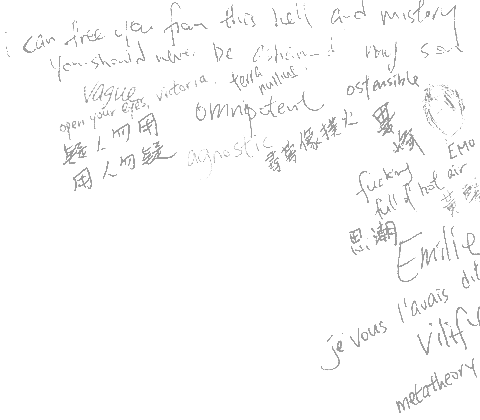 i can free you from this hell and mistery
you should never be ashamed my soul
vague
open your eyes, victoria.
terra
nullius.
omnipotent
ostensible
疑人勿用
用人勿疑
agnostic
EMO
fucking
full of hot air
思潮
Emilie
je vous l'avais dit
vilify
metatheory